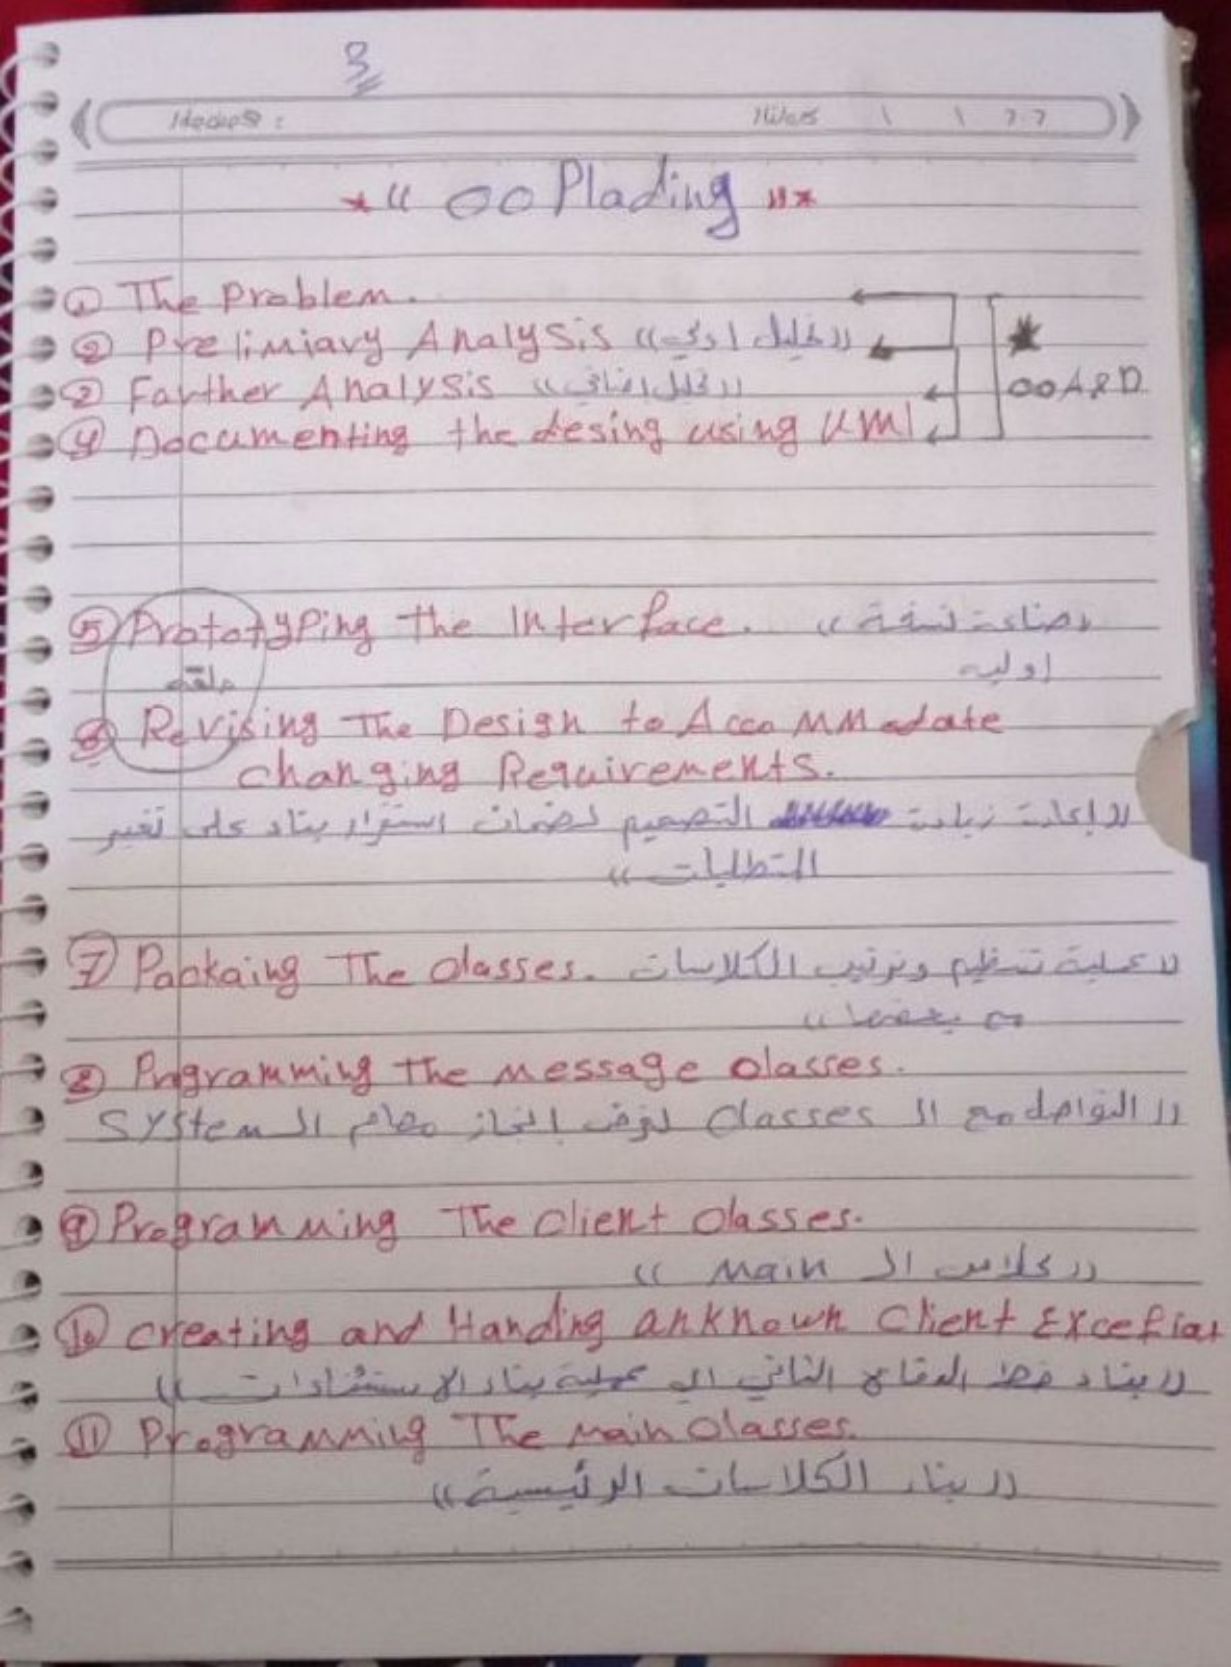 3
*« OO Plading »*
① The problem.
② Prelimiary Analysis «تحليل اولي»
② Farther Analysis «تحليل اضافي»
④ Documenting the desing using UMl
*
OOA&D
⑤ Prototyping the Interface. «صناعة نسخة
اولية
حلقه
⑥ Revising The Design to AccoMModate
changing Requirements.
«إعادة زيادة التصميم لضمان استقرار بناء على تغير
التطلبات»
⑦ Packaing The classes. «عملية تنظيم وترتيب الكلاسات
مع بعضها»
⑧ Programming the message classes.
«التواصل مع ال classes لغرض إنجاز مهام ال system
⑨ Programming The client classes.
«كلاس ال main»
⑩ creating and Handing anknown client
«بناء خط الدفاع الثاني الى عملية بناء الاستثنادات»
⑪ Programming The main classes.
«بناء الكلاسات الرئيسية»